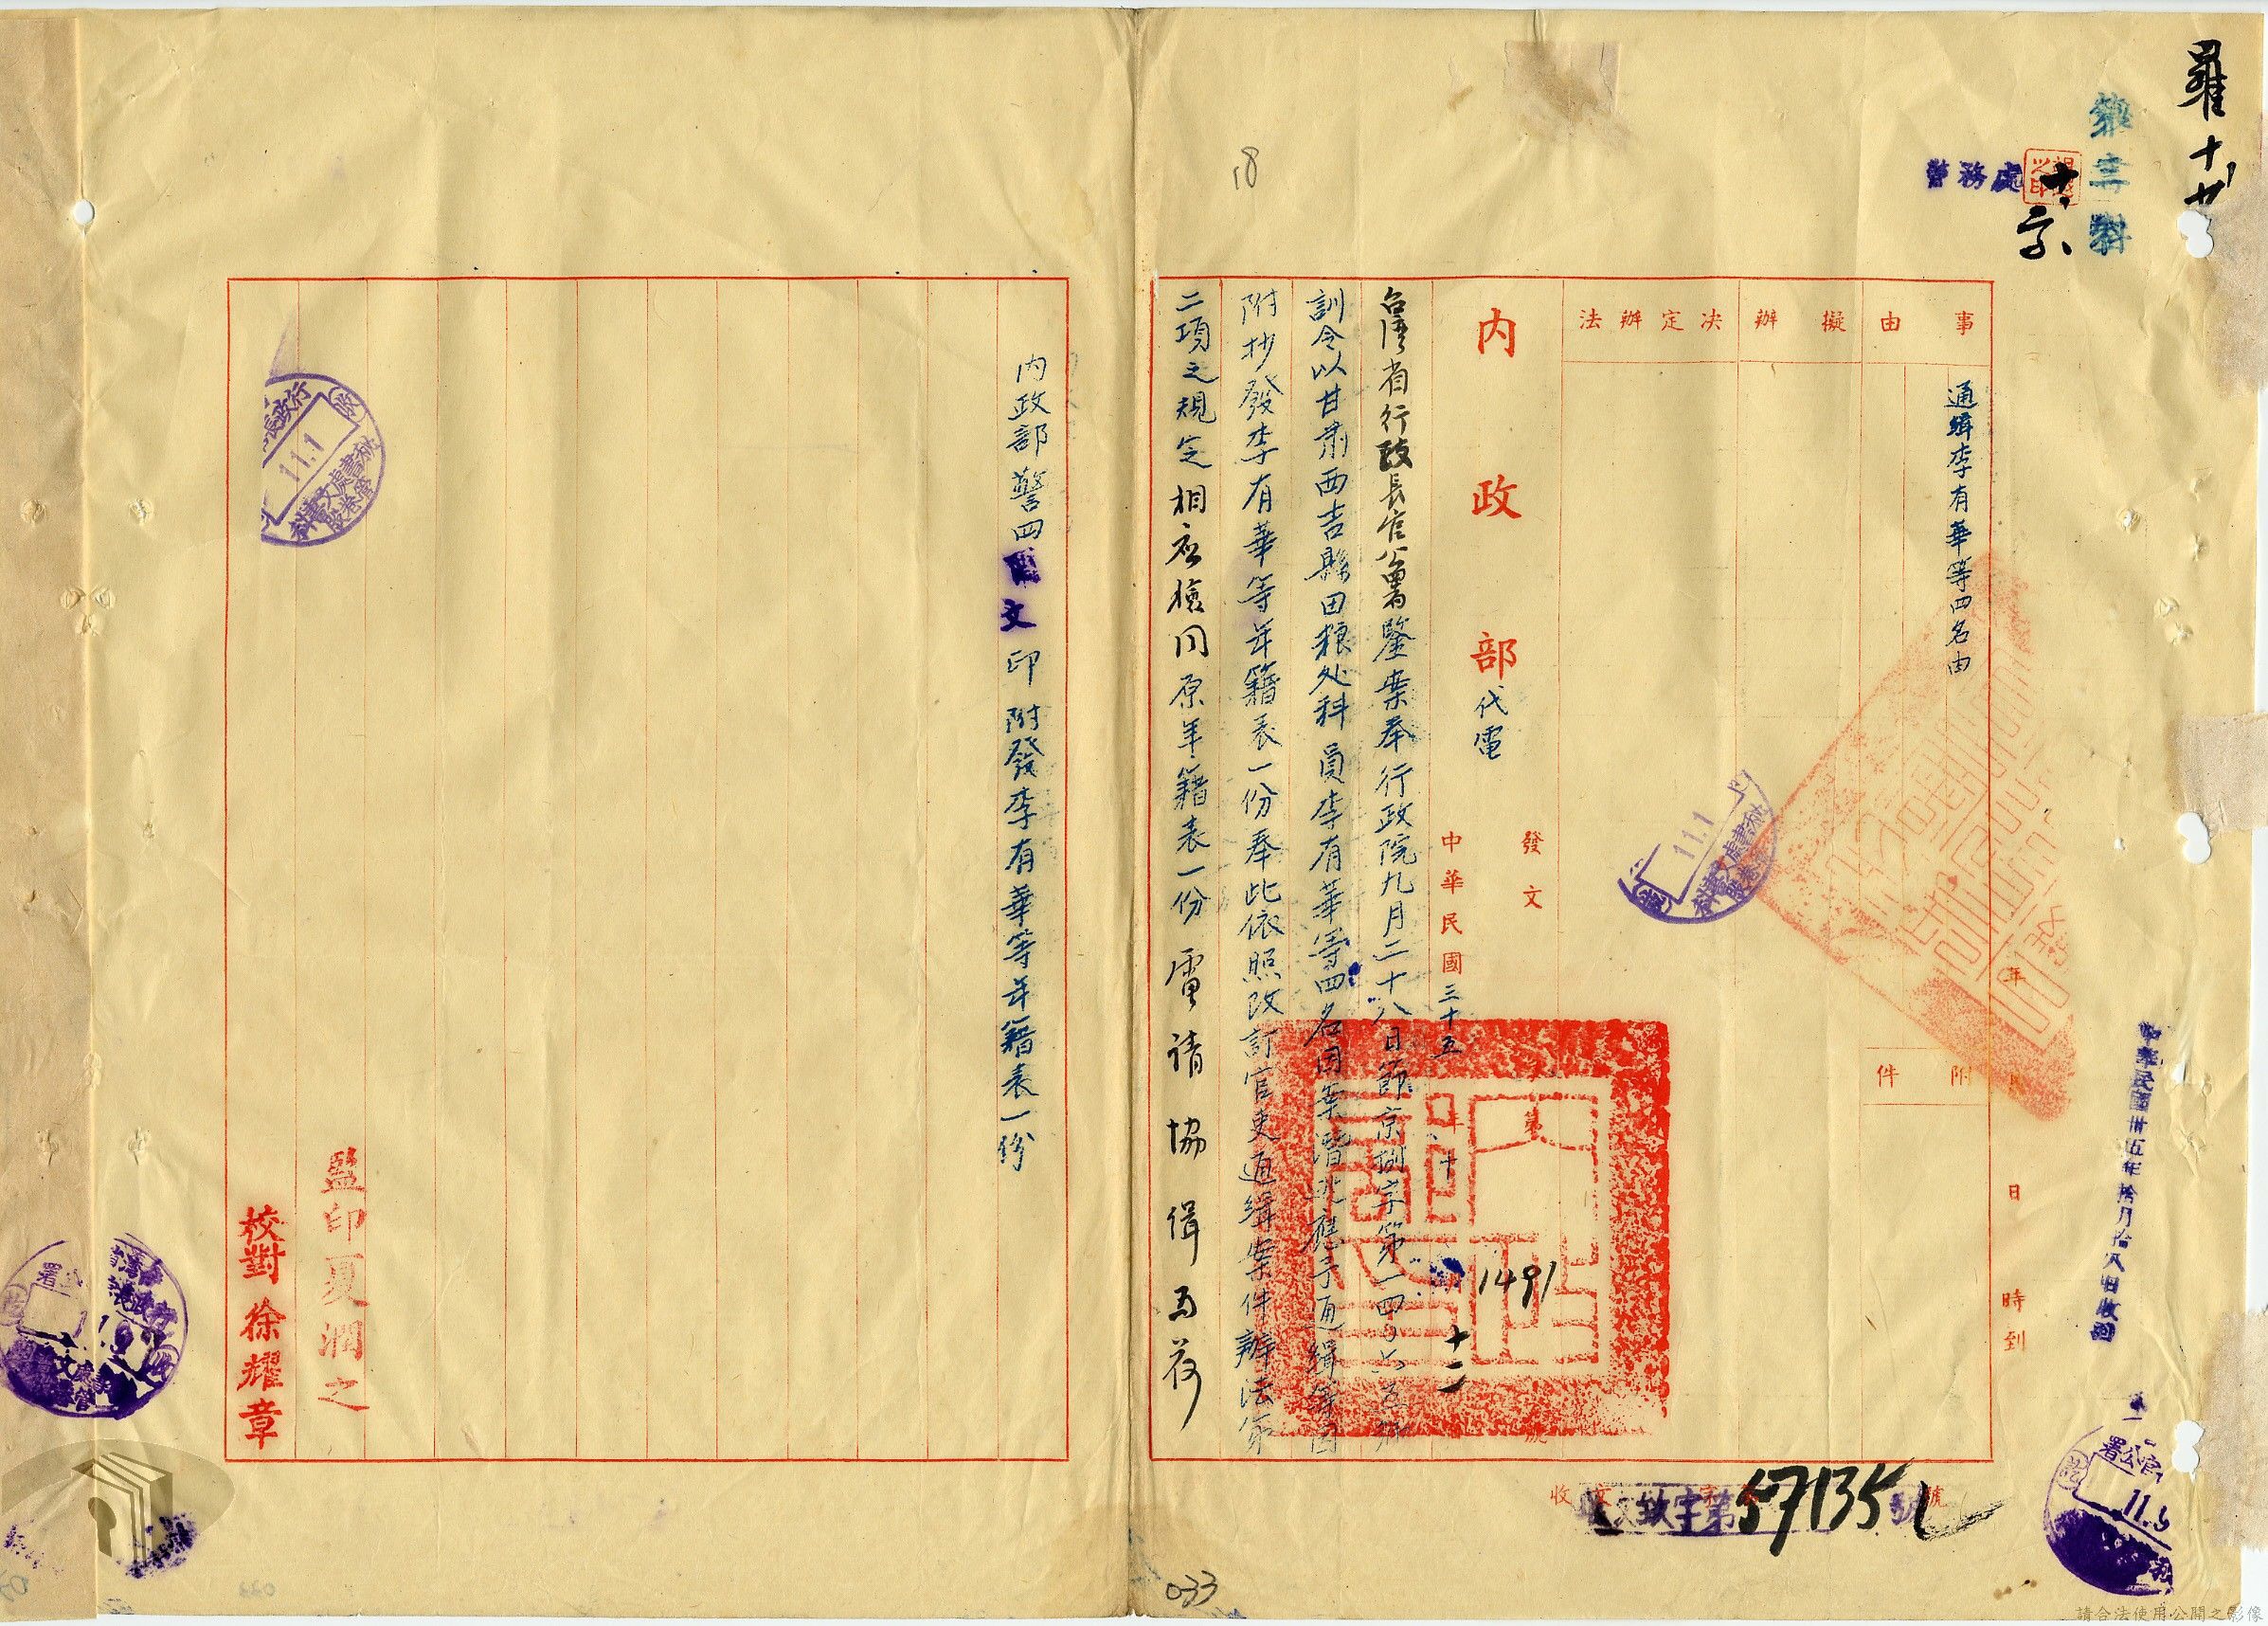 羅十廿
第三科
警務處
事由
通緝李有華等四名由
擬辦
決定辦法
附件
年
日
時到
中華民國卅五年拾月拾八日收到
內政部代電
發文
第
號
1491
中華民國三十五年十
十二
台灣省行政長官公署鑒案奉行政院九月二十八日節京捌字第一四
訓令以甘肅西吉縣田粮处科員李有華等四名因案潛逃應予通緝等因
附抄發李有華等年籍表一份奉此依照改訂官吏通緝案件辦法第
二項之規定相應檢同原年籍表一份電請協緝為荷
內政部警四
文
印附發李有華等年籍表一份
監印夏潤之
校對徐耀章
收文 字第57135號
11.1
11.1
18
033
請合法使用公開之影像